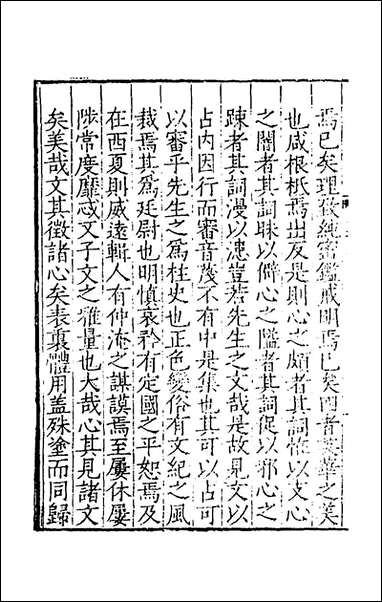 焉已矣理致純密鑑戒明焉已矣四者羣華之美
也咸根柢焉出反是則心之頗者其詞怪以支心
之闇者其詞昧以僻心之隘者其詞促以邪心之
踈者其詞漫以漶豈若先生之文哉是故見文以
占內因行而審音蔑不有中是集也其可以占可
以審乎先生之爲柱史也正色變俗有文紀之風
裁焉其爲廷尉也明愼哀矜有定國之平恕焉及
在西夏則威遠輯人有仲淹之謀謨焉至屢休屢
陟常度靡忒又子文之雅量也大哉心其見諸文
矣美哉文其徵諸心矣表裏體用盖殊塗而同歸